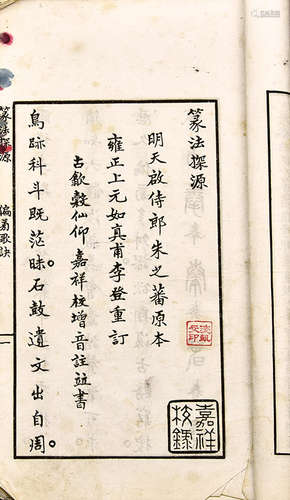 篆法探源
明天啟侍郎朱之蕃原本
雍正上元如真甫李登重訂
古歙穀仙仰嘉祥校增音註竝書
鳥跡科斗既茫昧石鼓遺文出自周
篆法探源
偏旁歌訣
一
嘉祥校鐫